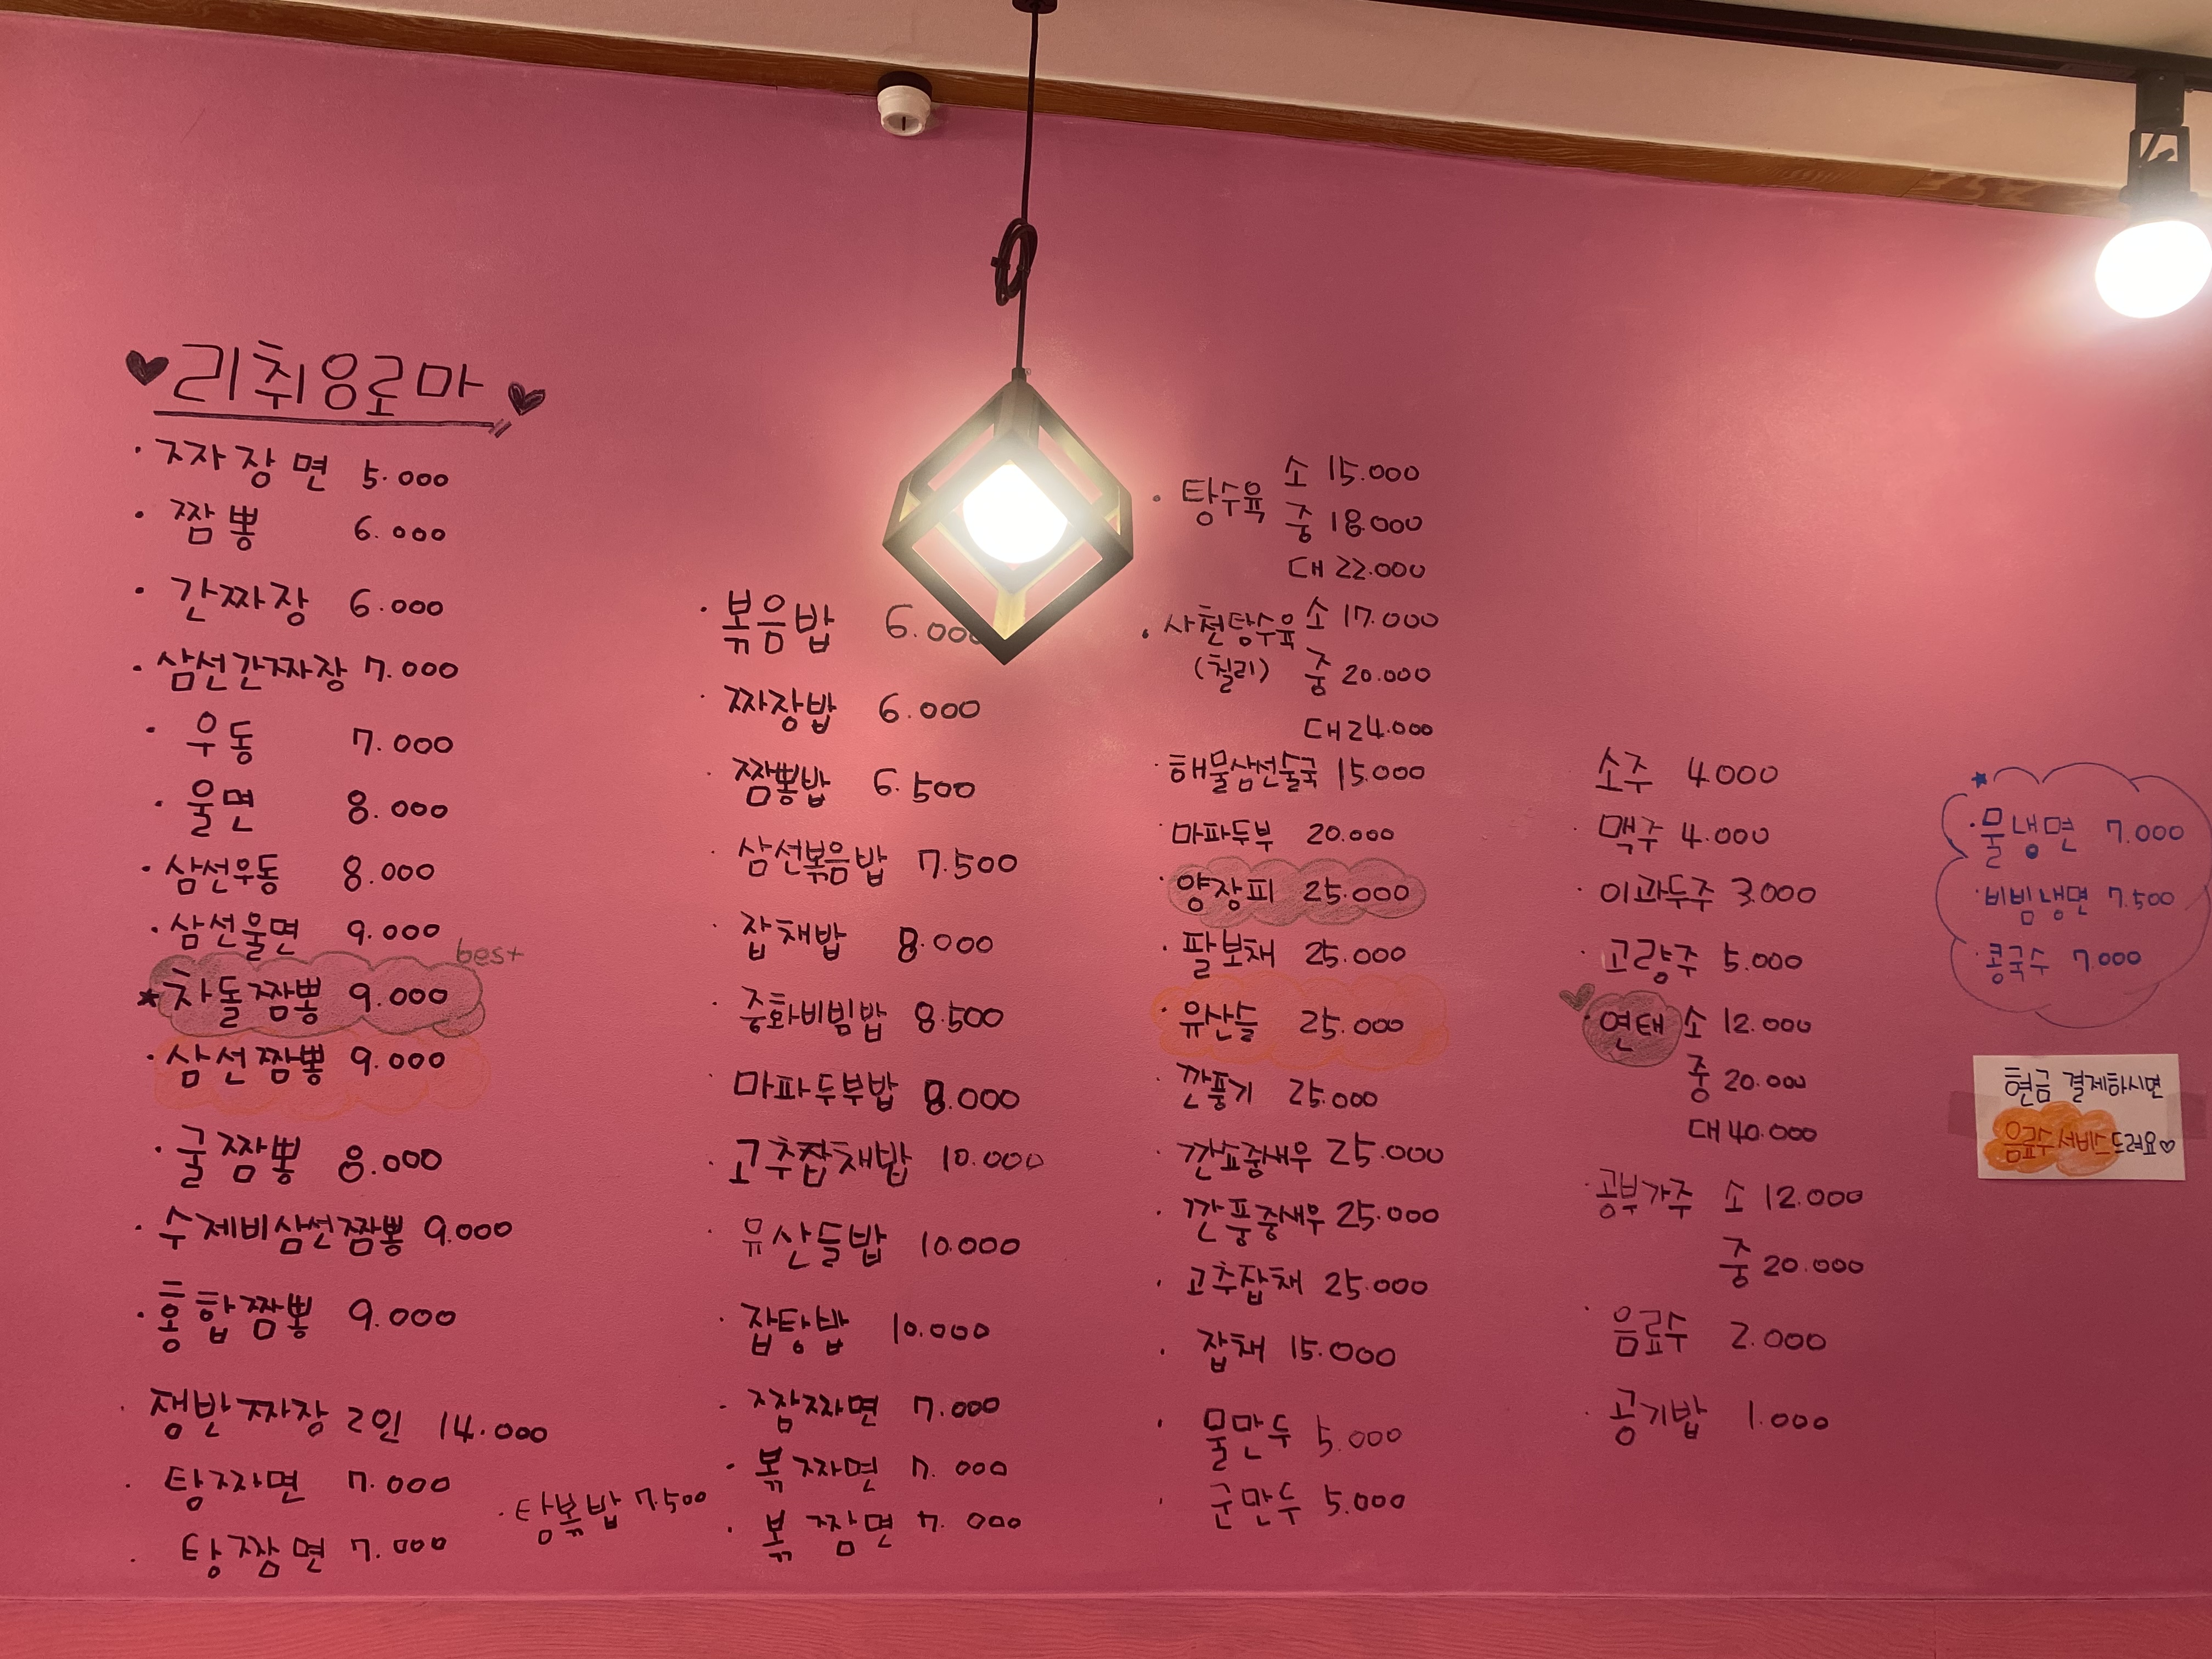 리취응로마
짜장면 5.000
짬뽕 6.000
간짜장 6.000
삼선간짜장 7.000
우동 7.000
울면 8.000
삼선우동 8.000
삼선울면 9.000
best
차돌짬뽕 9.000
삼선짬뽕 9.000
굴짬뽕 8.000
수제비삼선짬뽕 9.000
홍합짬뽕 9.000
쟁반짜장 2인 14.000
탕짜면 7.000
탕짬면 7.000
탕볶밥 7.500
볶음밥 6.000
짜장밥 6.000
짬뽕밥 6.500
삼선볶음밥 7.500
잡채밥 8.000
중화비빔밥 8.500
마파두부밥 8.000
고추잡채밥 10.000
유산슬밥 10.000
잡탕밥 10.000
짬짜면 7.000
볶짜면 7.000
볶짬면 7.000
탕수육 소 15.000
중 18.000
대 22.000
사천탕수육 소 17.000
(칠리) 중 20.000
대 24.000
해물삼선술국 15.000
마파두부 20.000
양장피 25.000
팔보채 25.000
유산슬 25.000
깐풍기 25.000
깐쇼중새우 25.000
깐풍중새우 25.000
고추잡채 25.000
잡채 15.000
물만두 5.000
군만두 5.000
소주 4.000
맥주 4.000
이과두주 3.000
고량주 5.000
연태 소 12.000
중 20.000
대 40.000
공부가주 소 12.000
중 20.000
음료수 2.000
공기밥 1.000
물냉면 7.000
비빔냉면 7.500
콩국수 7.000
현금 결제하시면
음료수 서비스 드려요